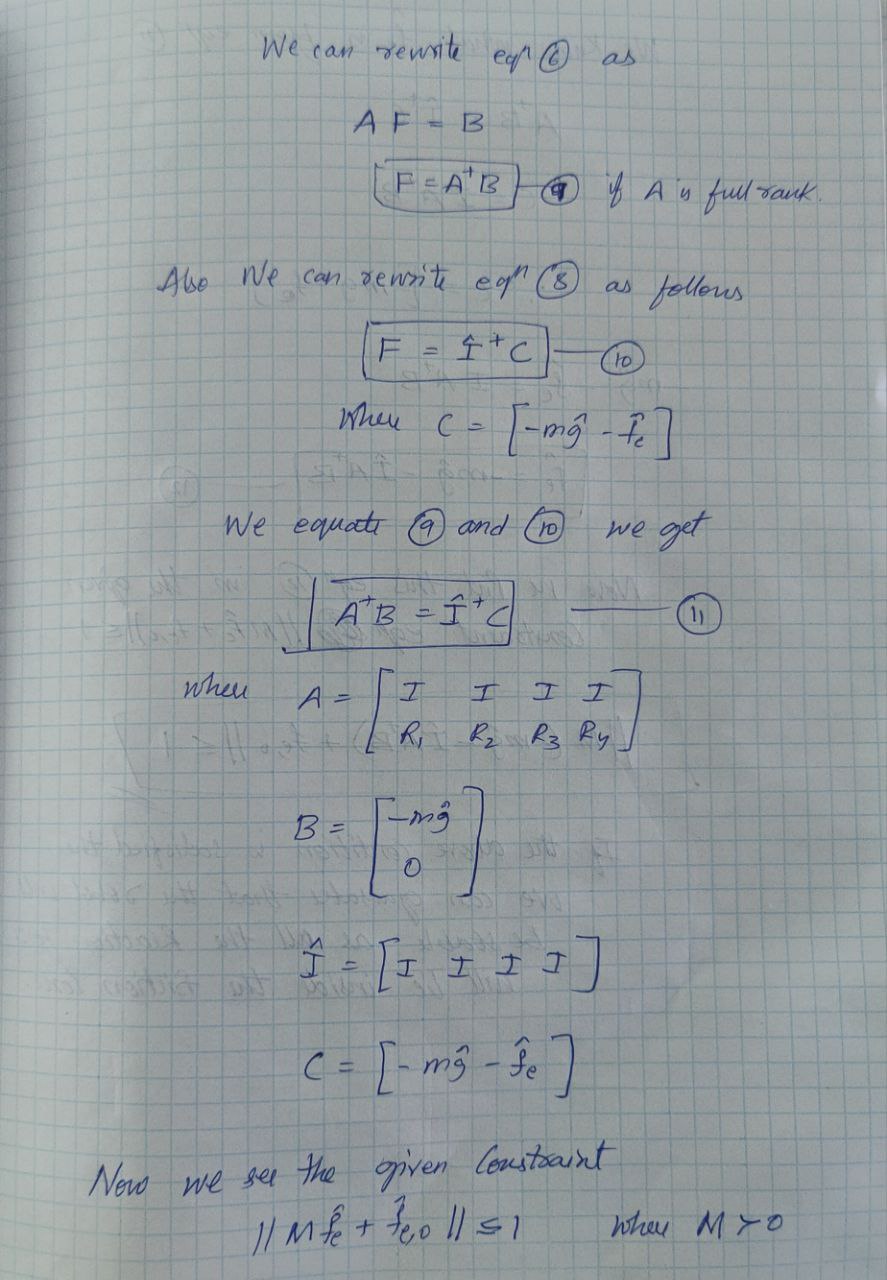 We can rewrite eqⁿ ⑥ as
A F = B
F = A⁺B — ⑨ if A is full rank.
Also We can rewrite eqⁿ ⑧ as follows
F = Î⁺C — ⑩
when C = [-mĝ - f̂e]
We equate ⑨ and ⑩ we get
A⁺B = Î⁺C — ⑪
when A = [I I I I
R₁ R₂ R₃ R₄]
B = [-mĝ
0]
Î = [I I I I]
C = [-mĝ - f̂e]
Now we see the given Constraint
||M f̂e + f̂e,o|| ≤ 1 when M > 0